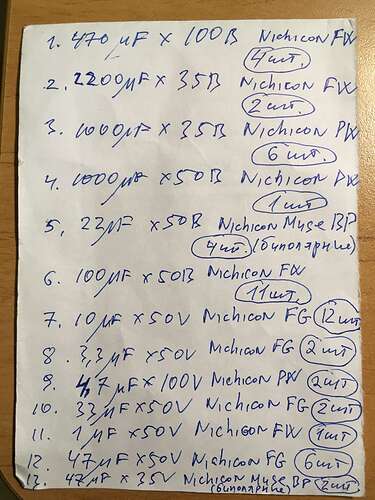 1. 470 µF × 100В Nichicon FW
4 шт.
2. 2200µF × 35В Nichicon FW
2 шт.
3. 1000µF × 35В Nichicon PW
6 шт.
4. 1000µF × 50В Nichicon PW
1 шт
5. 22µF × 50В Nichicon Muse BP
4 шт. (биполярные)
6. 100µF × 50В Nichicon FW
11 шт.
7. 10µF × 50V Nichicon FG 12 шт
8. 3,3µF × 50V Nichicon FG 2 шт
9. 4,7µF × 100V Nichicon PW 2 шт
10. 33µF × 50V Nichicon FG 2 шт
11. 1µF × 50V Nichicon FW 1 шт
12. 47µF × 50V Nichicon FG 6 шт
13. 47µF × 35V Nichicon Muse BP 2 шт
(биполярные)